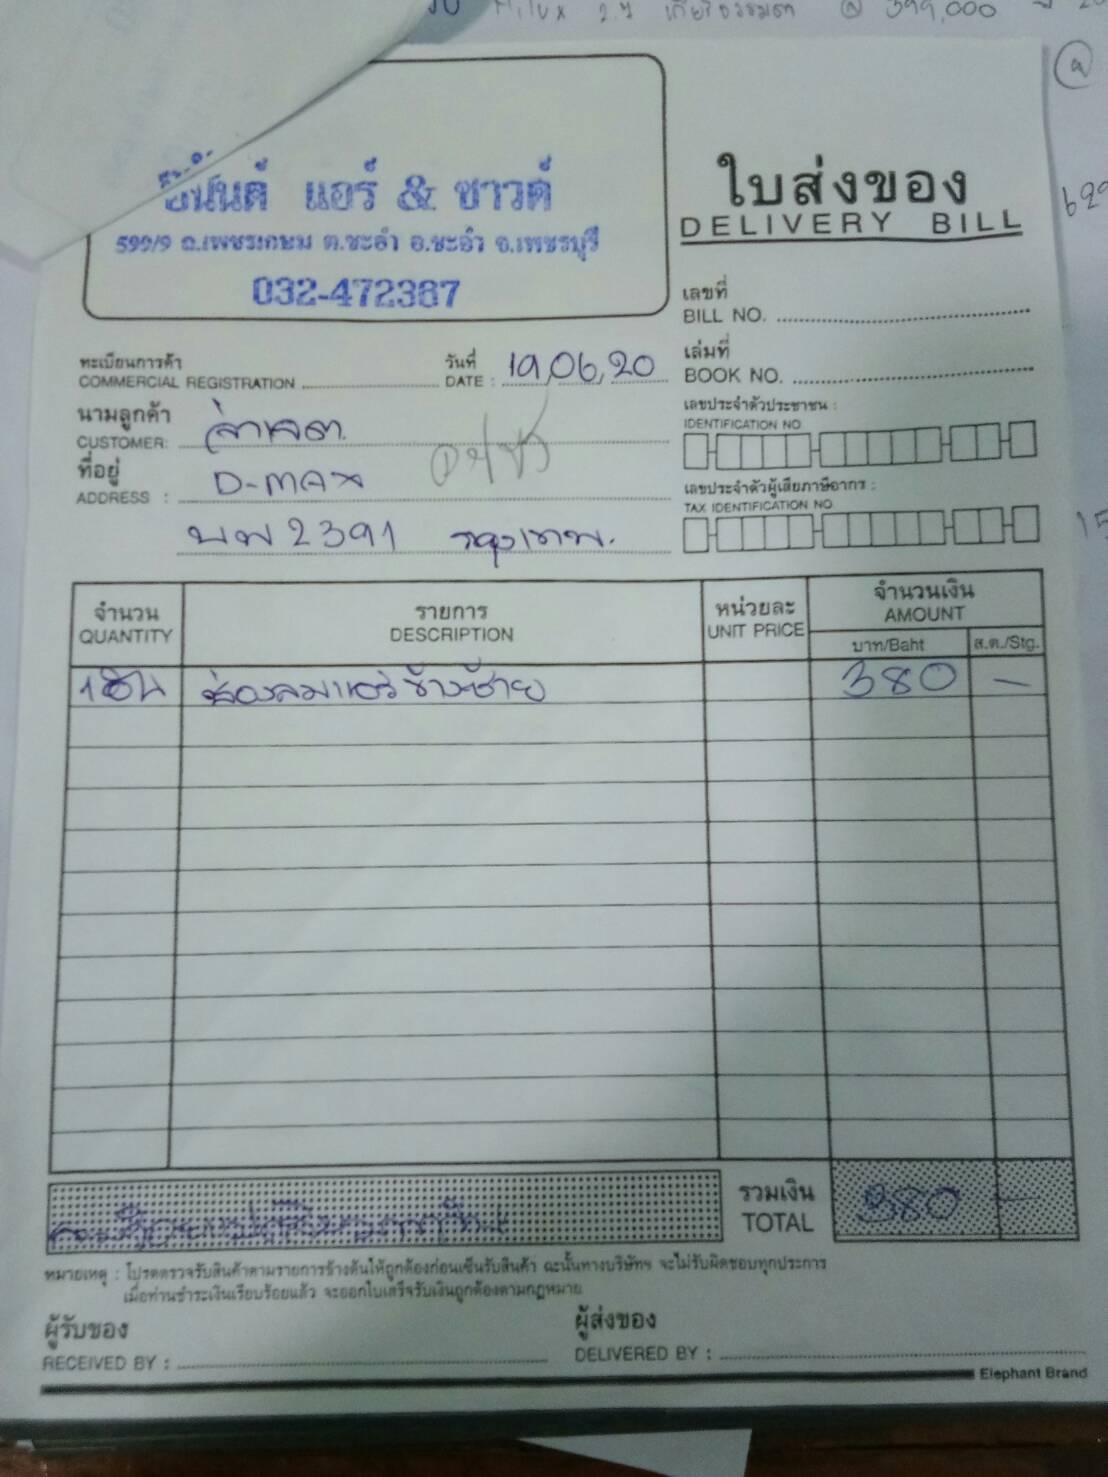 Hilux @ 399,000
แอร์ & ซาวด์
ใบส่งของ
DELIVERY BILL
599/9 ถ.เพชรเกษม ต.ชะอำ อ.ชะอำ จ.เพชรบุรี
032-472387
เลขที่
BILL NO.
ทะเบียนการค้า
COMMERCIAL REGISTRATION
วันที่
DATE : 19,06,20
เล่มที่
BOOK NO.
นามลูกค้า
CUSTOMER:
เลขประจำตัวประชาชน :
IDENTIFICATION NO
ที่อยู่
ADDRESS : D-MAX
เลขประจำตัวผู้เสียภาษีอากร :
TAX IDENTIFICATION NO
2391 กรุงเทพ.
จำนวน
QUANTITY
รายการ
DESCRIPTION
หน่วยละ
UNIT PRICE
จำนวนเงิน
AMOUNT
บาท/Baht
ส.ต./Stg.
1 อัน ช่องลมแอร์ ข้างซ้าย 380 —
รวมเงิน
TOTAL 380 —
หมายเหตุ : โปรดตรวจรับสินค้าตามรายการข้างต้นให้ถูกต้องก่อนเซ็นรับสินค้า ฉะนั้นทางบริษัทฯ จะไม่รับผิดชอบทุกประการ
เมื่อท่านชำระเงินเรียบร้อยแล้ว จะออกใบเสร็จรับเงินถูกต้องตามกฎหมาย
ผู้รับของ
RECEIVED BY :
ผู้ส่งของ
DELIVERED BY :
Elephant Brand